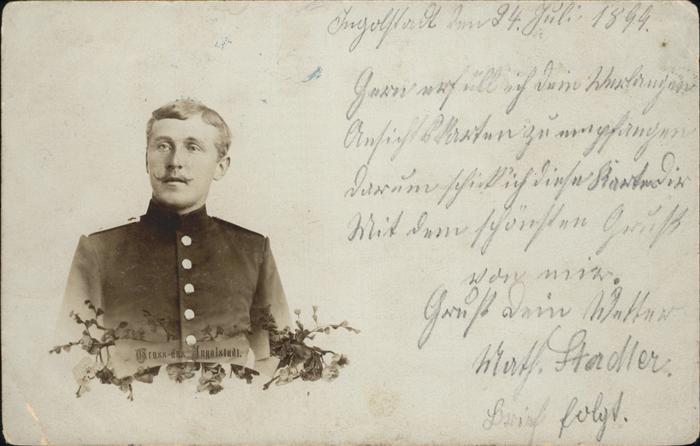 Ingolstadt den 24. Juli 1899.
Gern erfüll ich dein Verlangen
Ansichtskarten zu empfangen
darum schick ich diese Karte dir
Mit dem schönsten Gruß
von mir.
Gruß Dein Vetter
Math. Stadler.
Brief folgt.
Gruss aus Ingolstadt.